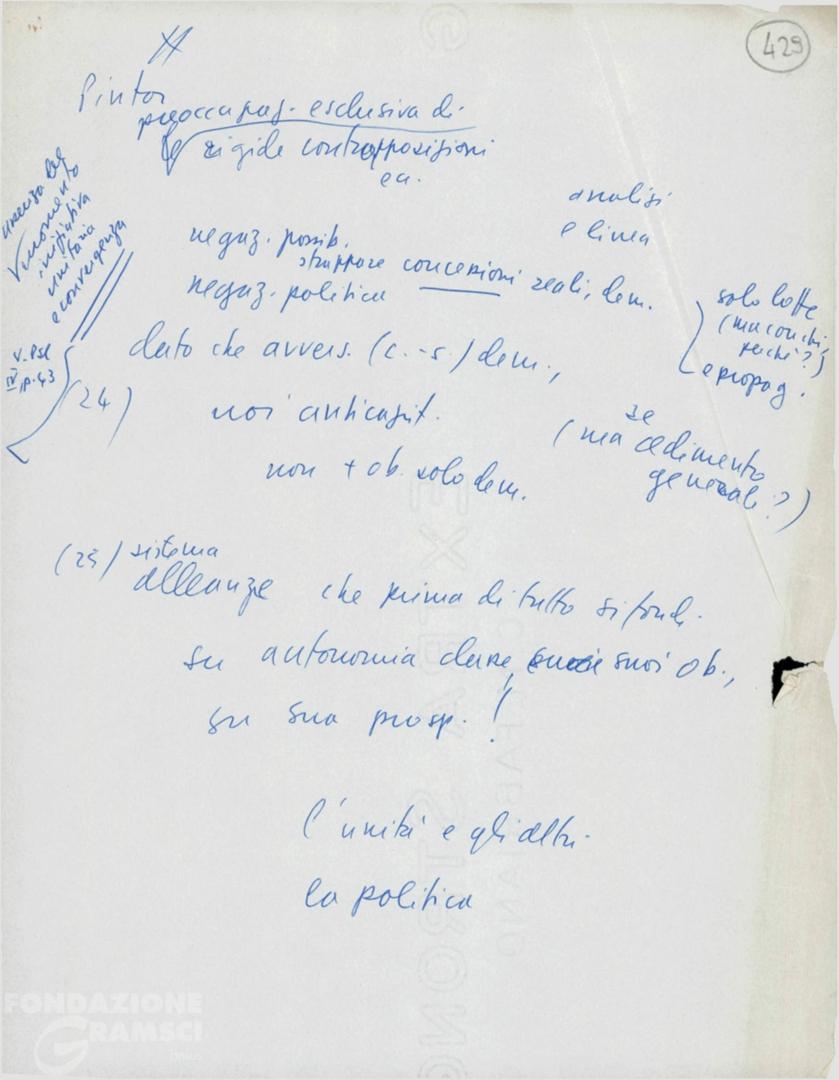 429
Pintor
preoccupaz. esclusiva di
rigide contrapposizioni
ecc.
analisi
e linea
assenza del
momento
iniziativa
unitaria
e convergenza
negaz. possib.
strappare concessioni reali, dem.
negaz. politica
solo lotte
(ma con chi,
perché?)
e propag.
dato che avvers. (c.-s.) dem.,
V. PSI
IV p. 43
(24)
noi anticapit.
se
(ma cedimento
generale?)
non + ob. solo dem.
(25) sistema
alleanze che prima di tutto si fondi
su autonomia classe, suoi ob.,
su sua prosp.!
l'unità e gli altri
la politica
FONDAZIONE
GRAMSCI
EXTRA STRONG